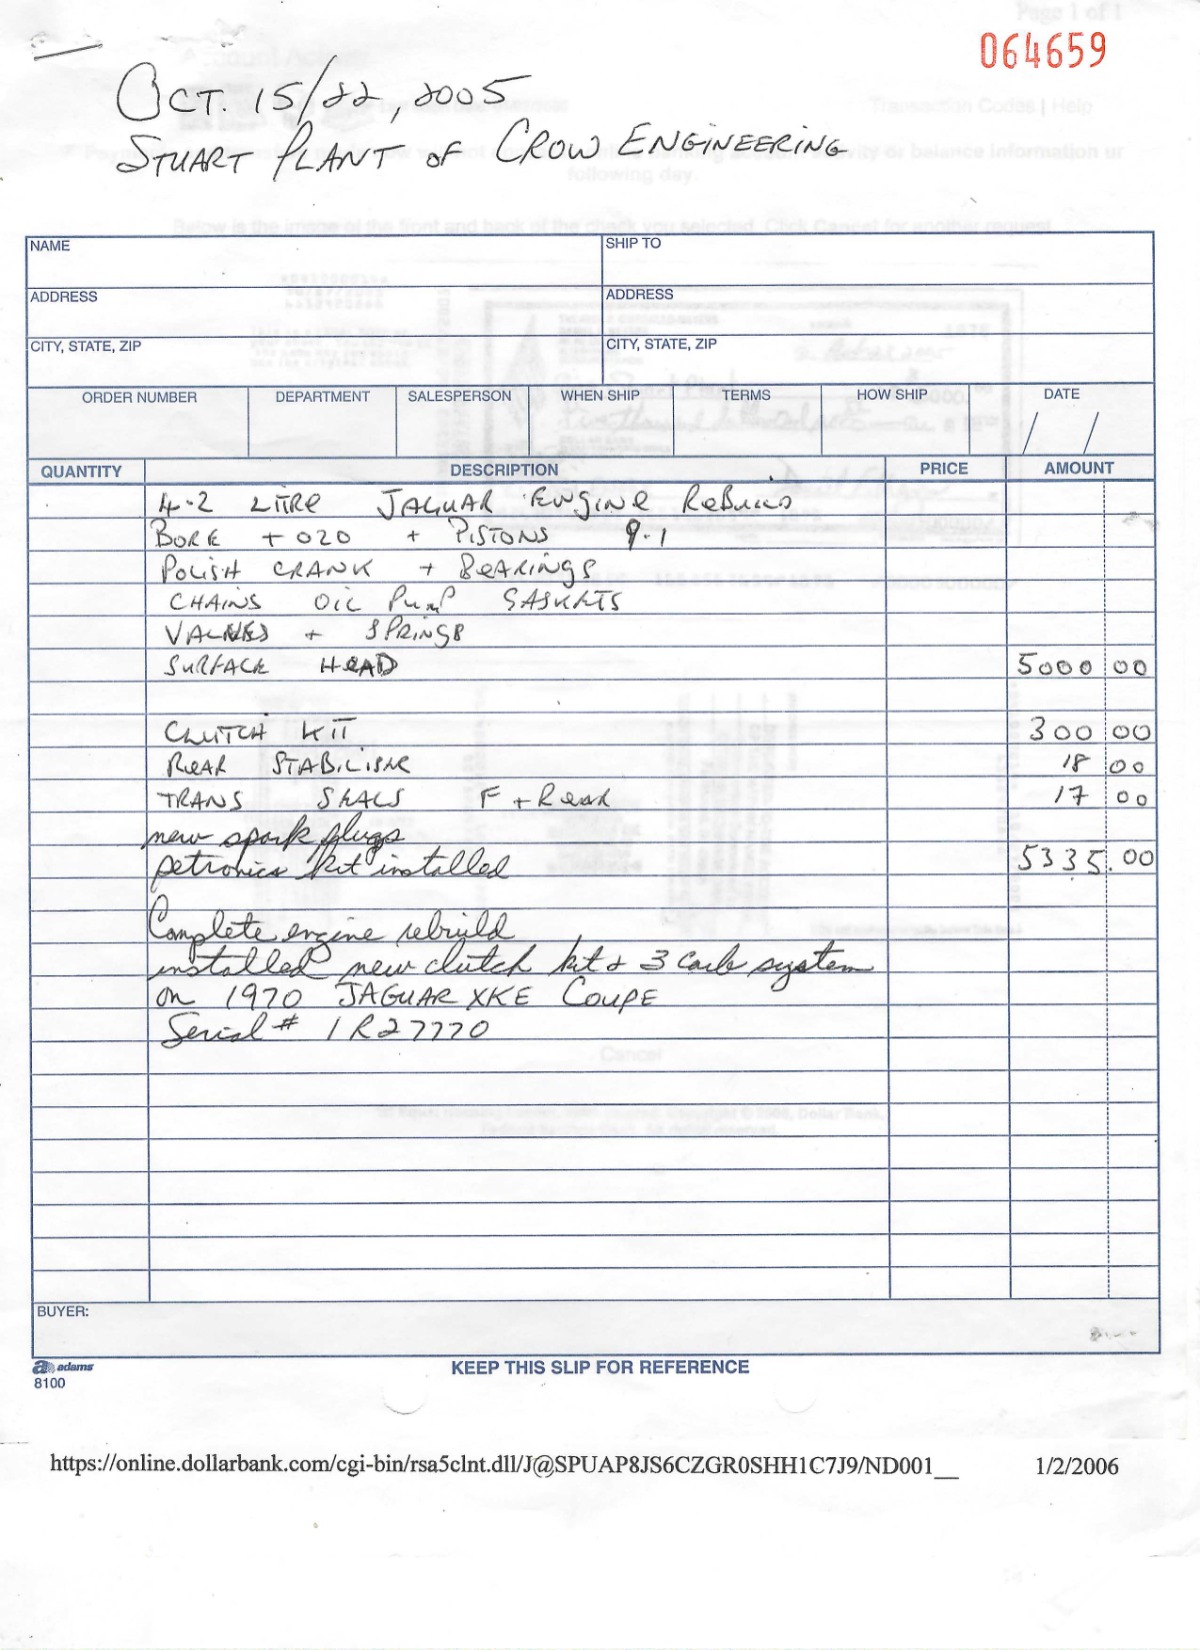 Page 1 of 1
064659
OCT. 15/22, 2005
STUART PLANT OF CROW ENGINEERING
NAME
SHIP TO
ADDRESS
ADDRESS
CITY, STATE, ZIP
CITY, STATE, ZIP
ORDER NUMBER DEPARTMENT SALESPERSON WHEN SHIP TERMS HOW SHIP DATE
/ /
QUANTITY DESCRIPTION PRICE AMOUNT
4-2 LITRE JAGUAR ENGINE REBUILD
BORE +020 + PISTONS 9.1
POLISH CRANK + BEARINGS
CHAINS OIL PUMP GASKETS
VALVES + SPRINGS
SURFACE HEAD 5000 00
CLUTCH KIT 300 00
REAR 18 00
TRANS SEALS F + Rear 17 00
new spark plugs
petronics kit installed 5335.00
Complete engine rebuild
installed new clutch kit & 3 carb system
on 1970 JAGUAR XKE COUPE
Serial # 1R27770
BUYER:
adams
8100
KEEP THIS SLIP FOR REFERENCE
https://online.dollarbank.com/cgi-bin/rsa5clnt.dll/J@SPUAP8JS6CZGR0SHH1C7J9/ND001__ 1/2/2006